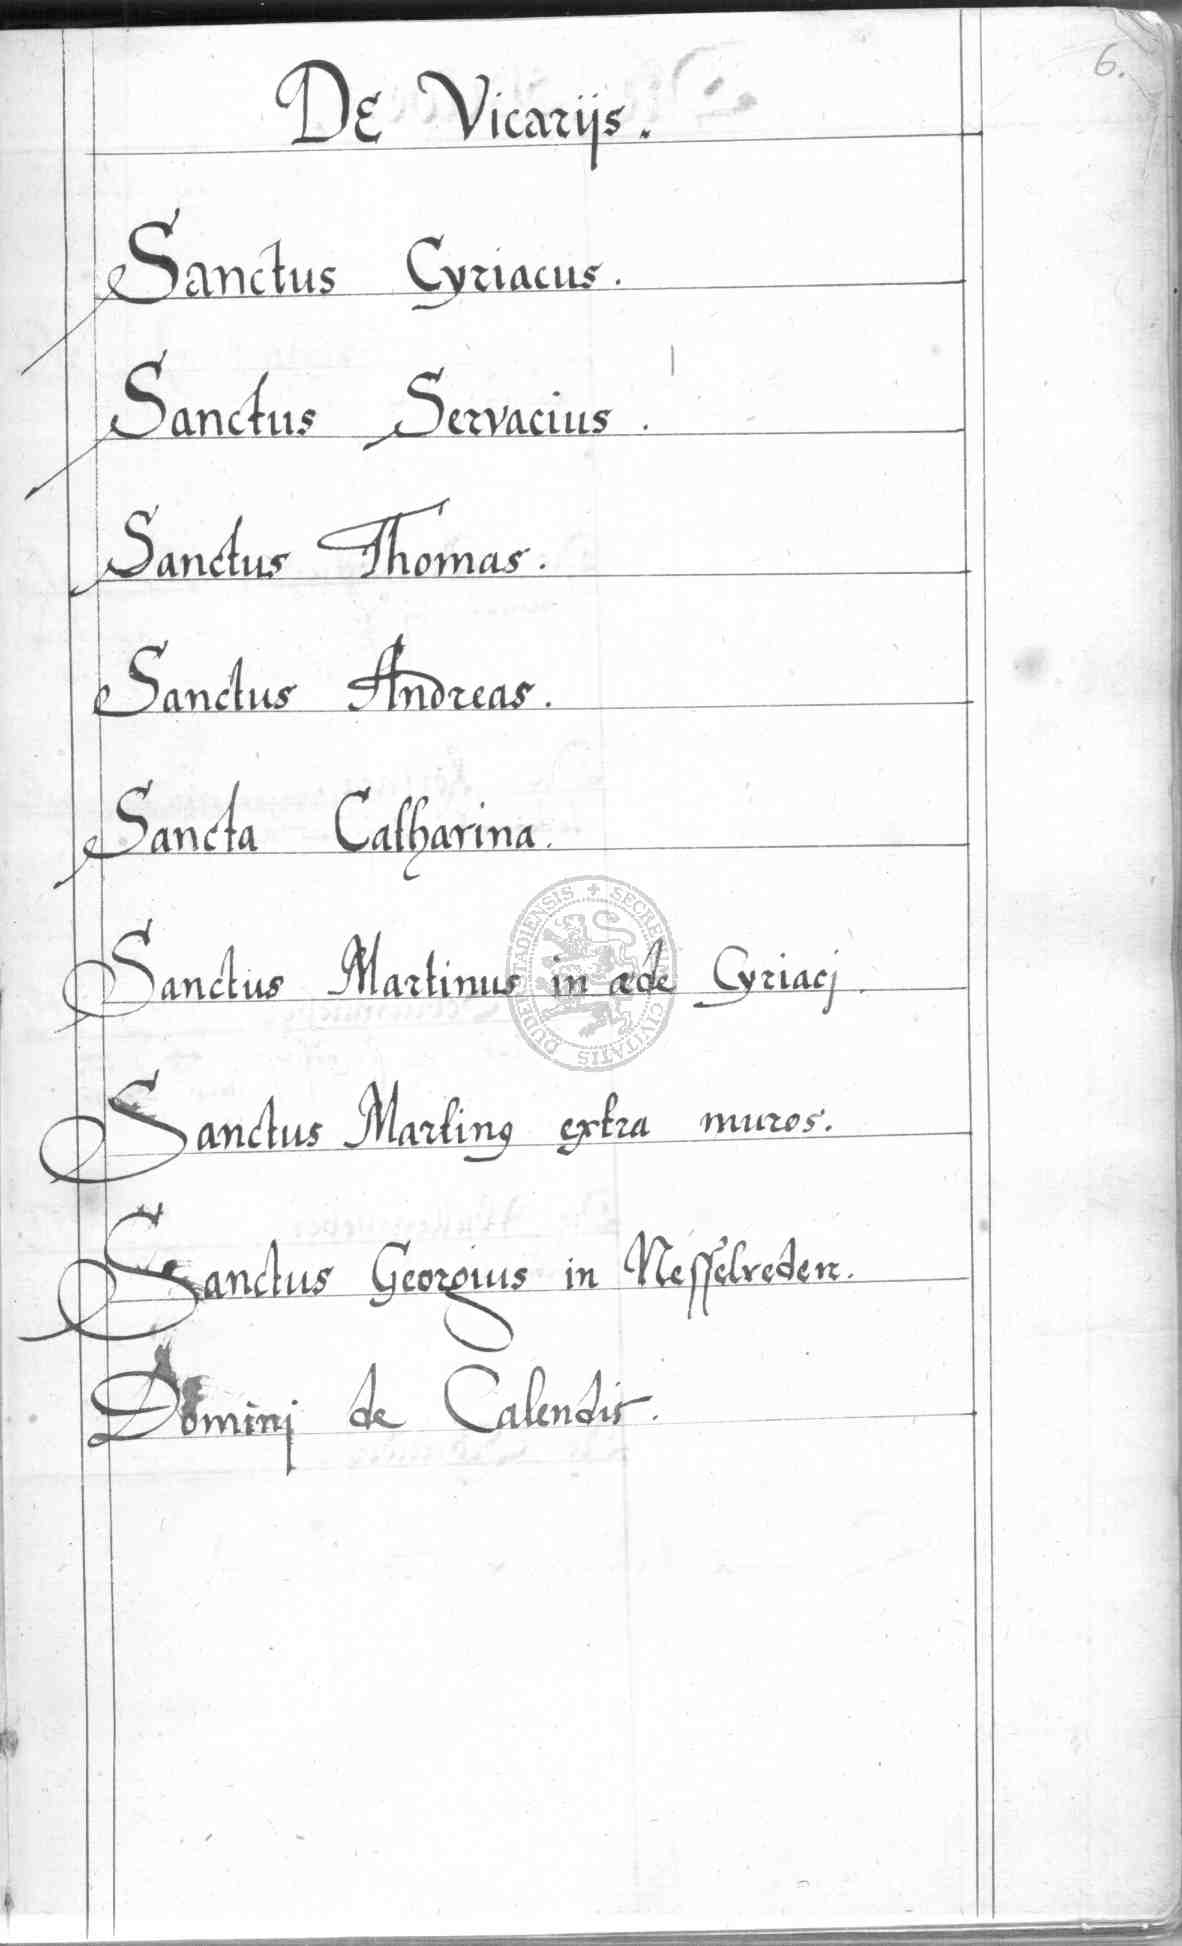 6.
De Vicarijs.
Sanctus Cyriacus.
Sanctus Servacius.
Sanctus Thomas.
Sanctus Andreas.
Sancta Catharina.
Sanctus Martinus in æde Cyriacj.
Sanctus Martinꝰ extra muros.
Sanctus Georgius in Nesselreden.
Dominj de Calendis.
SECRETUM CIVITATIS DUDERSTADIENSIS